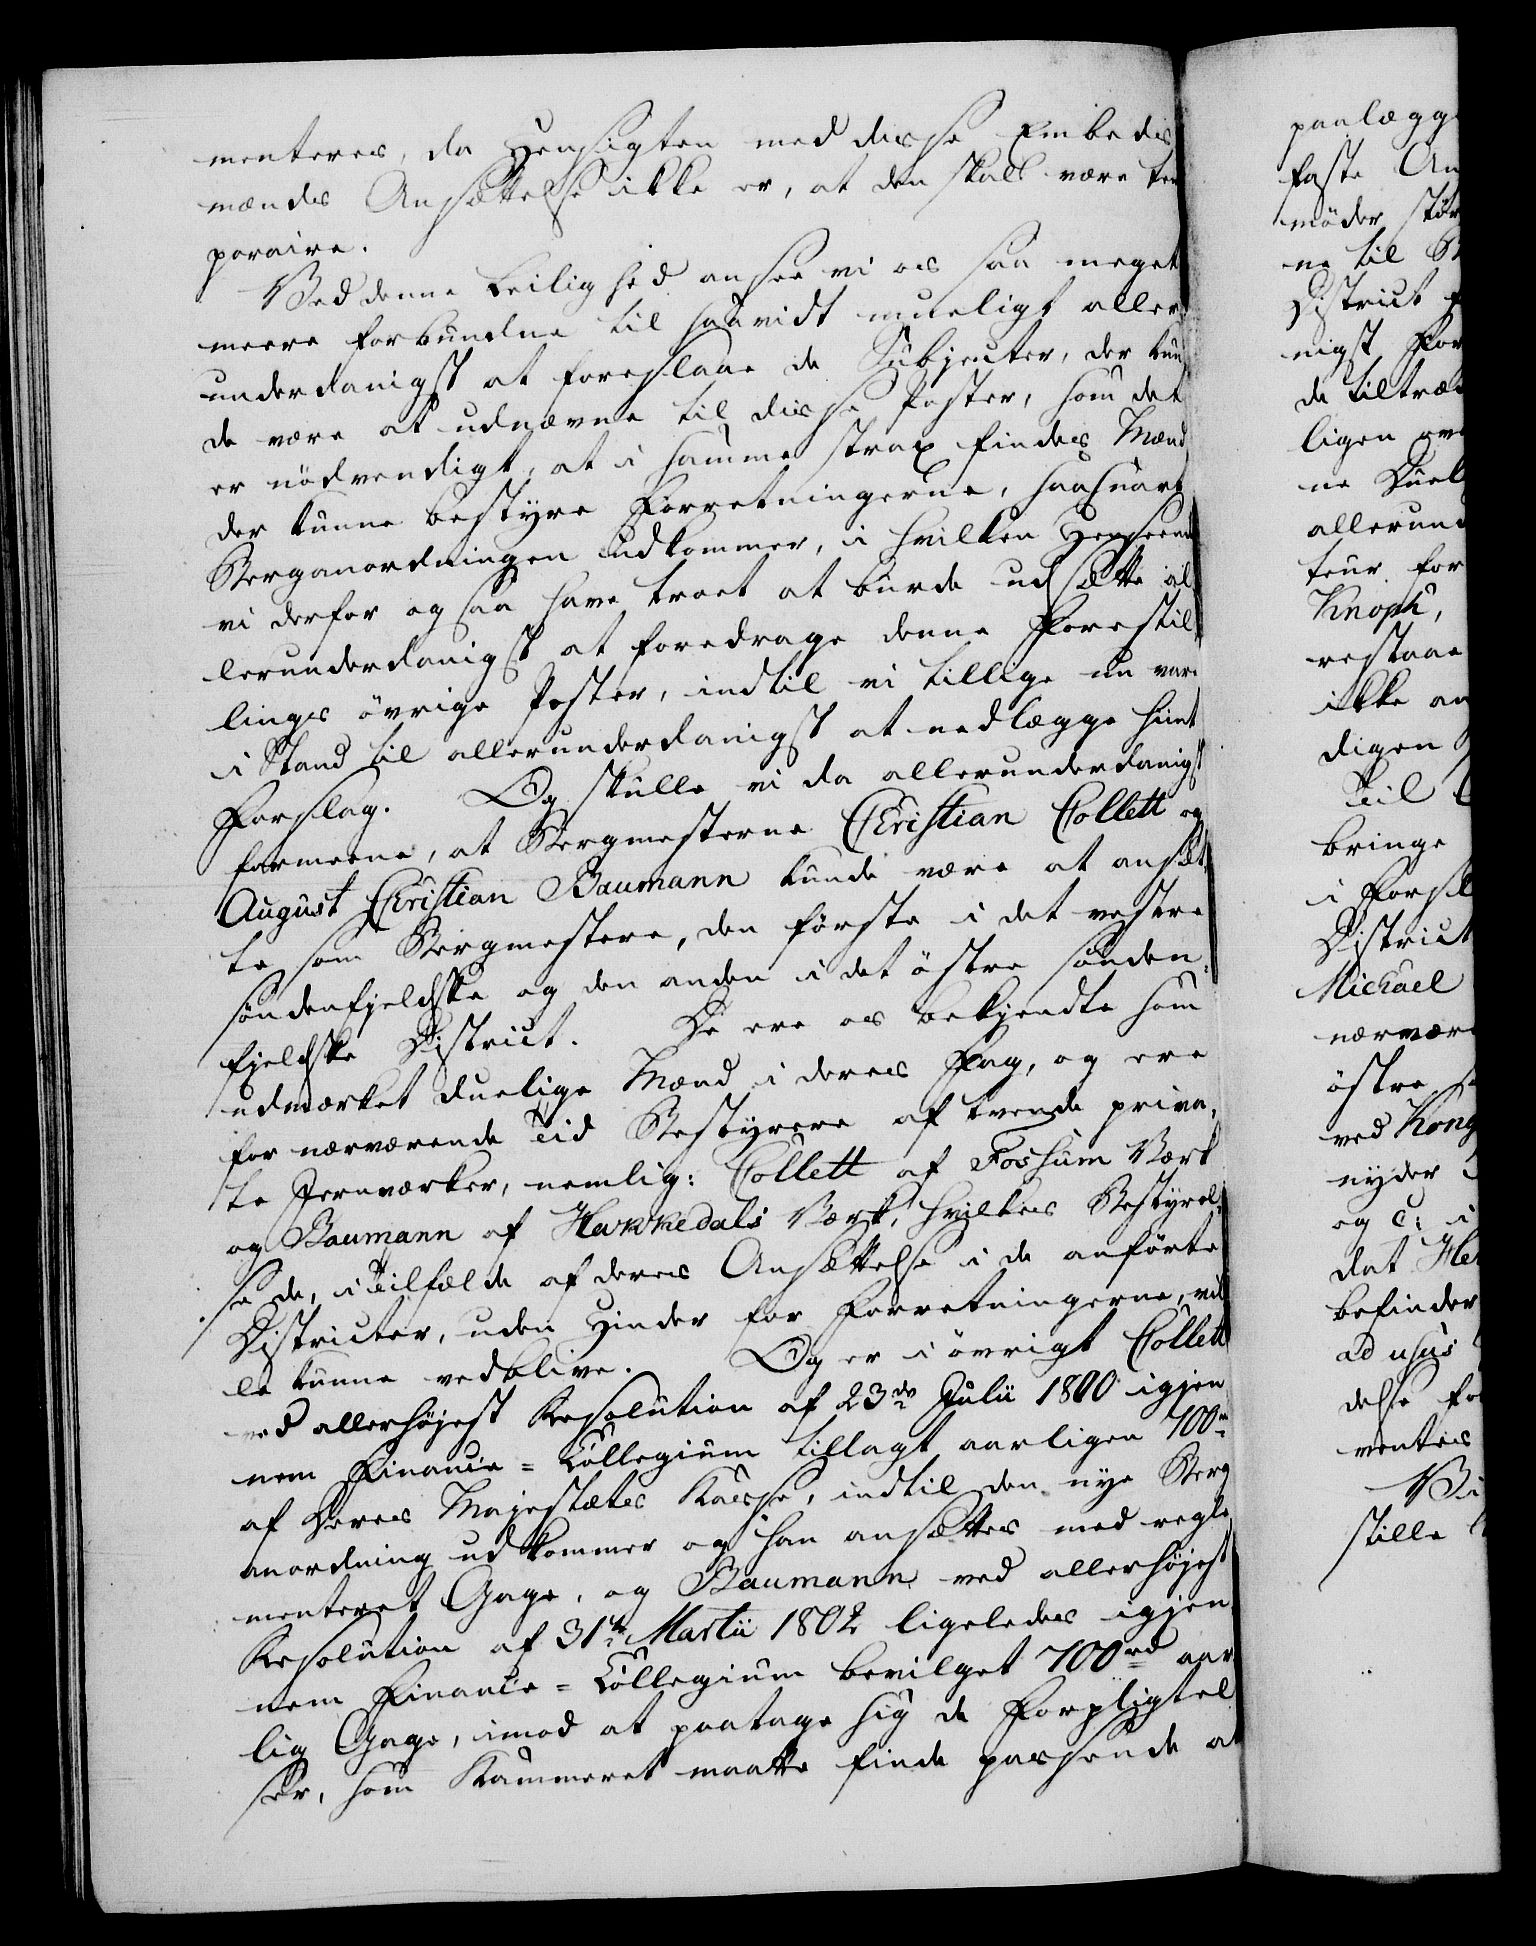 menteres, da Hensigten med disse Embeds
mænds Ansættelse ikke er, at den skal være tem
poraire.
Ved denne Leilighed ansee vi os saa meget
meere forbundne til saavidt mueligt aller
underdanigst at foreslaae de Subjecter, der kun
de være at udnævne til disse Poster, som det
er nödvendigt, at i samme strax findes Mænd
der kunne bestyre Forretningerne, saasnart
Berganordningen udkommer, i hvilken Henseende
vi derfor ogsaa have troet at burde udsætte al
lerunderdanigst at foredrage denne Forestil
lings övrige Poster, indtil vi tillige nu vare
i Stand til allerunderdanigst at nedlægge hiint
Forslag. Og skulle vi da allerunderdanigst
formeene, at Bergmesterne Christian Collett og
August Christian Baumann kunde være at ansæt,
te som Bergmestere, den förste i det vestre
söndenfjeldske og den anden i det östre sönden,
fjeldske District. De ere os bekjendte som
udmærket duelige Mænd i deres Fag, og ere
for nærværende Tid Bestyrere af tvende priva,
te Jernværker, nemlig: Collett af Fossum Værk
og Baumann af Hakkedals Værk, hvilkes Bestyrel,
se de, i Tilfælde af deres Ansættelse i de anförte
Districter, uden Hinder for Forretningerne, vil
le kunne vedblive. Og er i övrigt Collett
ved allerhöjest Resolution af 23de Julii 1800 igjen
nem Finance=Collegium tillagt aarligen 700rd
af Deres Majestæts Kasse, indtil den nye Berg
anordning udkommer og han ansættes med regle
menteret Gage, og Baumann ved allerhöjest
Resolution af 31te Martii 1802 ligeledes igjen
nem Finance=Collegium bevilget 700rd aar
lig Gage, imod at paatage sig de Forpligtel
ser, som Kammeret maatte finde passende at
paalægge
faste An
möder stör
ne til B
District
nigst For
de tiltræ
ligen ov
ne Duel
allerund
teur for
Knoph,
restaae
ikke an
digen
Til
bringe
i Forsl
District
Michael
nærvær
östre s
ved Kong
nyder
og C: i
dal He
befinder
ad usus
delse fo
ventes
Vi
stille